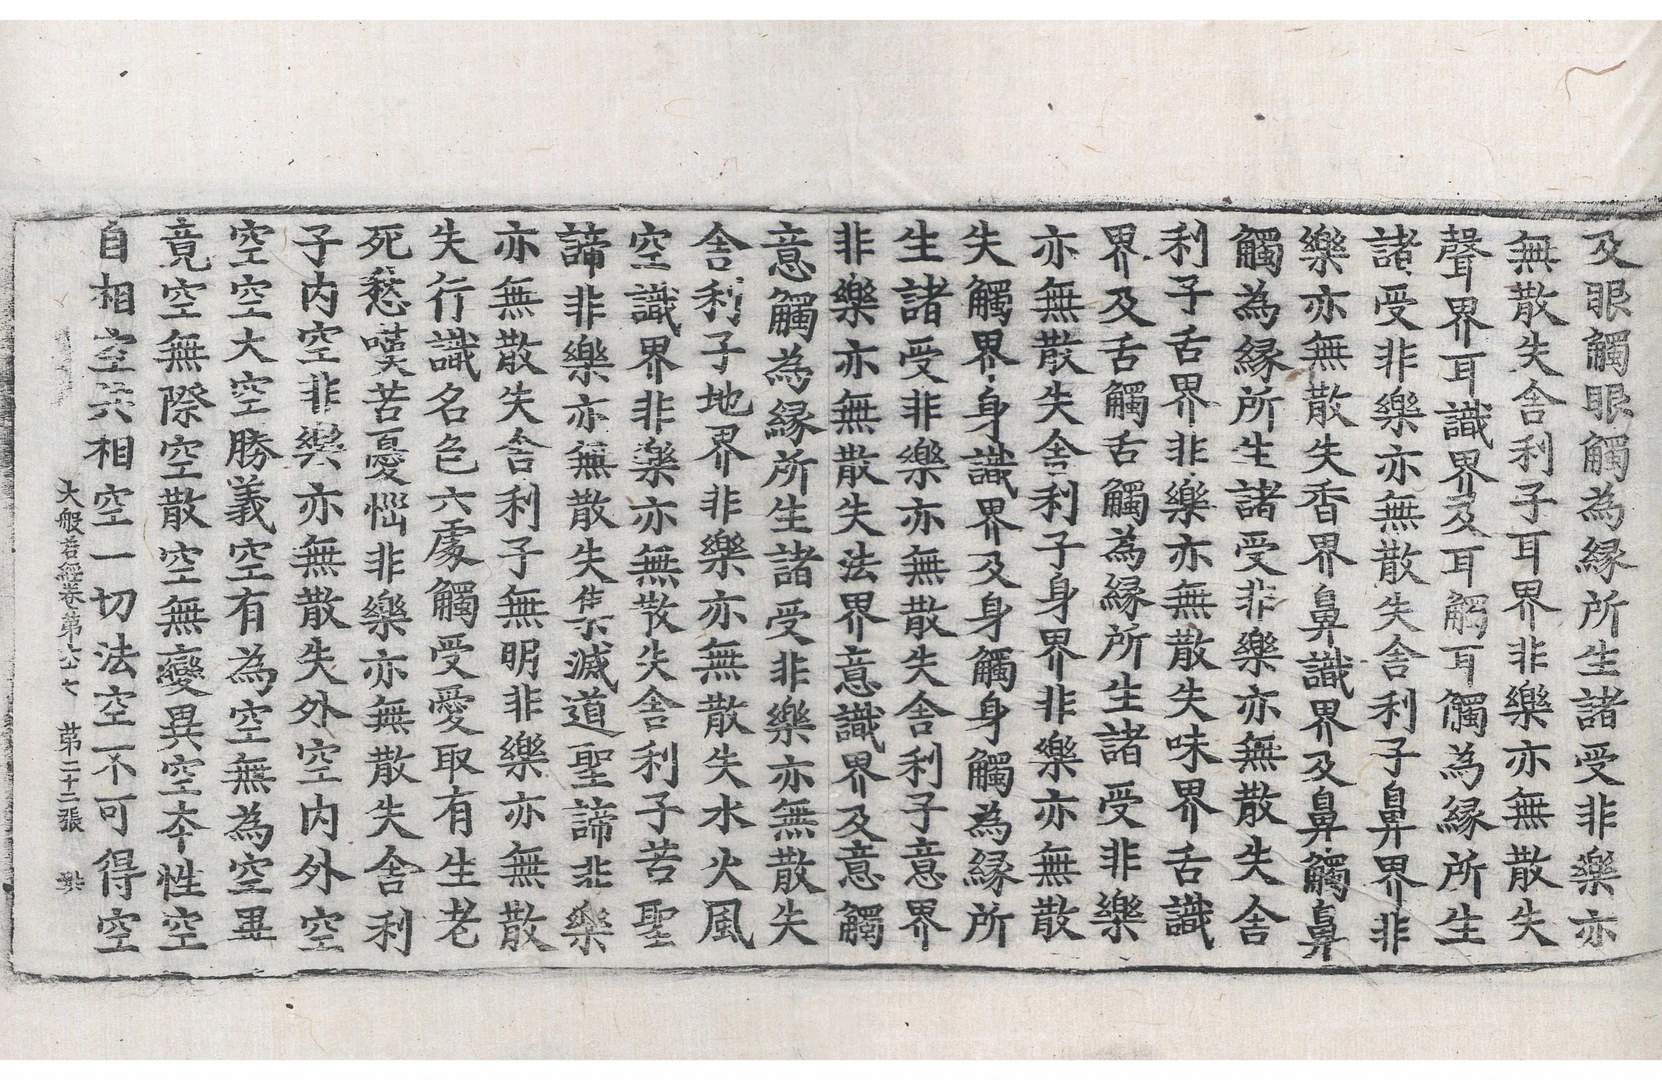 及眼觸眼觸為緣所生諸受非樂亦
無散失舍利子耳界非樂亦無散失
聲界耳識界及耳觸耳觸為緣所生
諸受非樂亦無散失舍利子鼻界非
樂亦無散失香界鼻識界及鼻觸鼻
觸為緣所生諸受非樂亦無散失舍
利子舌界非樂亦無散失味界舌識
界及舌觸舌觸為緣所生諸受非樂
亦無散失舍利子身界非樂亦無散
失觸界身識界及身觸身觸為緣所
生諸受非樂亦無散失舍利子意界
非樂亦無散失法界意識界及意觸
意觸為緣所生諸受非樂亦無散失
舍利子地界非樂亦無散失水火風
空識界非樂亦無散失舍利子苦聖
諦非樂亦無散失集滅道聖諦非樂
亦無散失舍利子無明非樂亦無散
失行識名色六處觸受愛取有生老
死愁嘆苦憂惱非樂亦無散失舍利
子內空非樂亦無散失外空內外空
空空大空勝義空有為空無為空畢
竟空無際空散空無變異空本性空
自相空共相空一切法空不可得空
大般若經卷第六十七 第二十二張